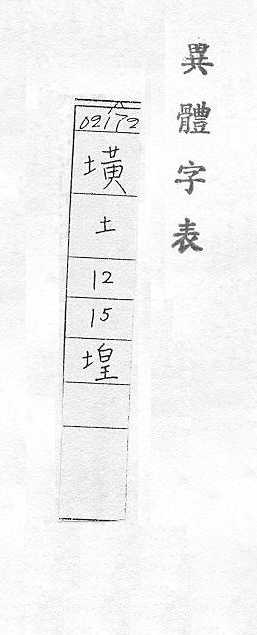 異體字表
02172
墴
土
12
15
堭